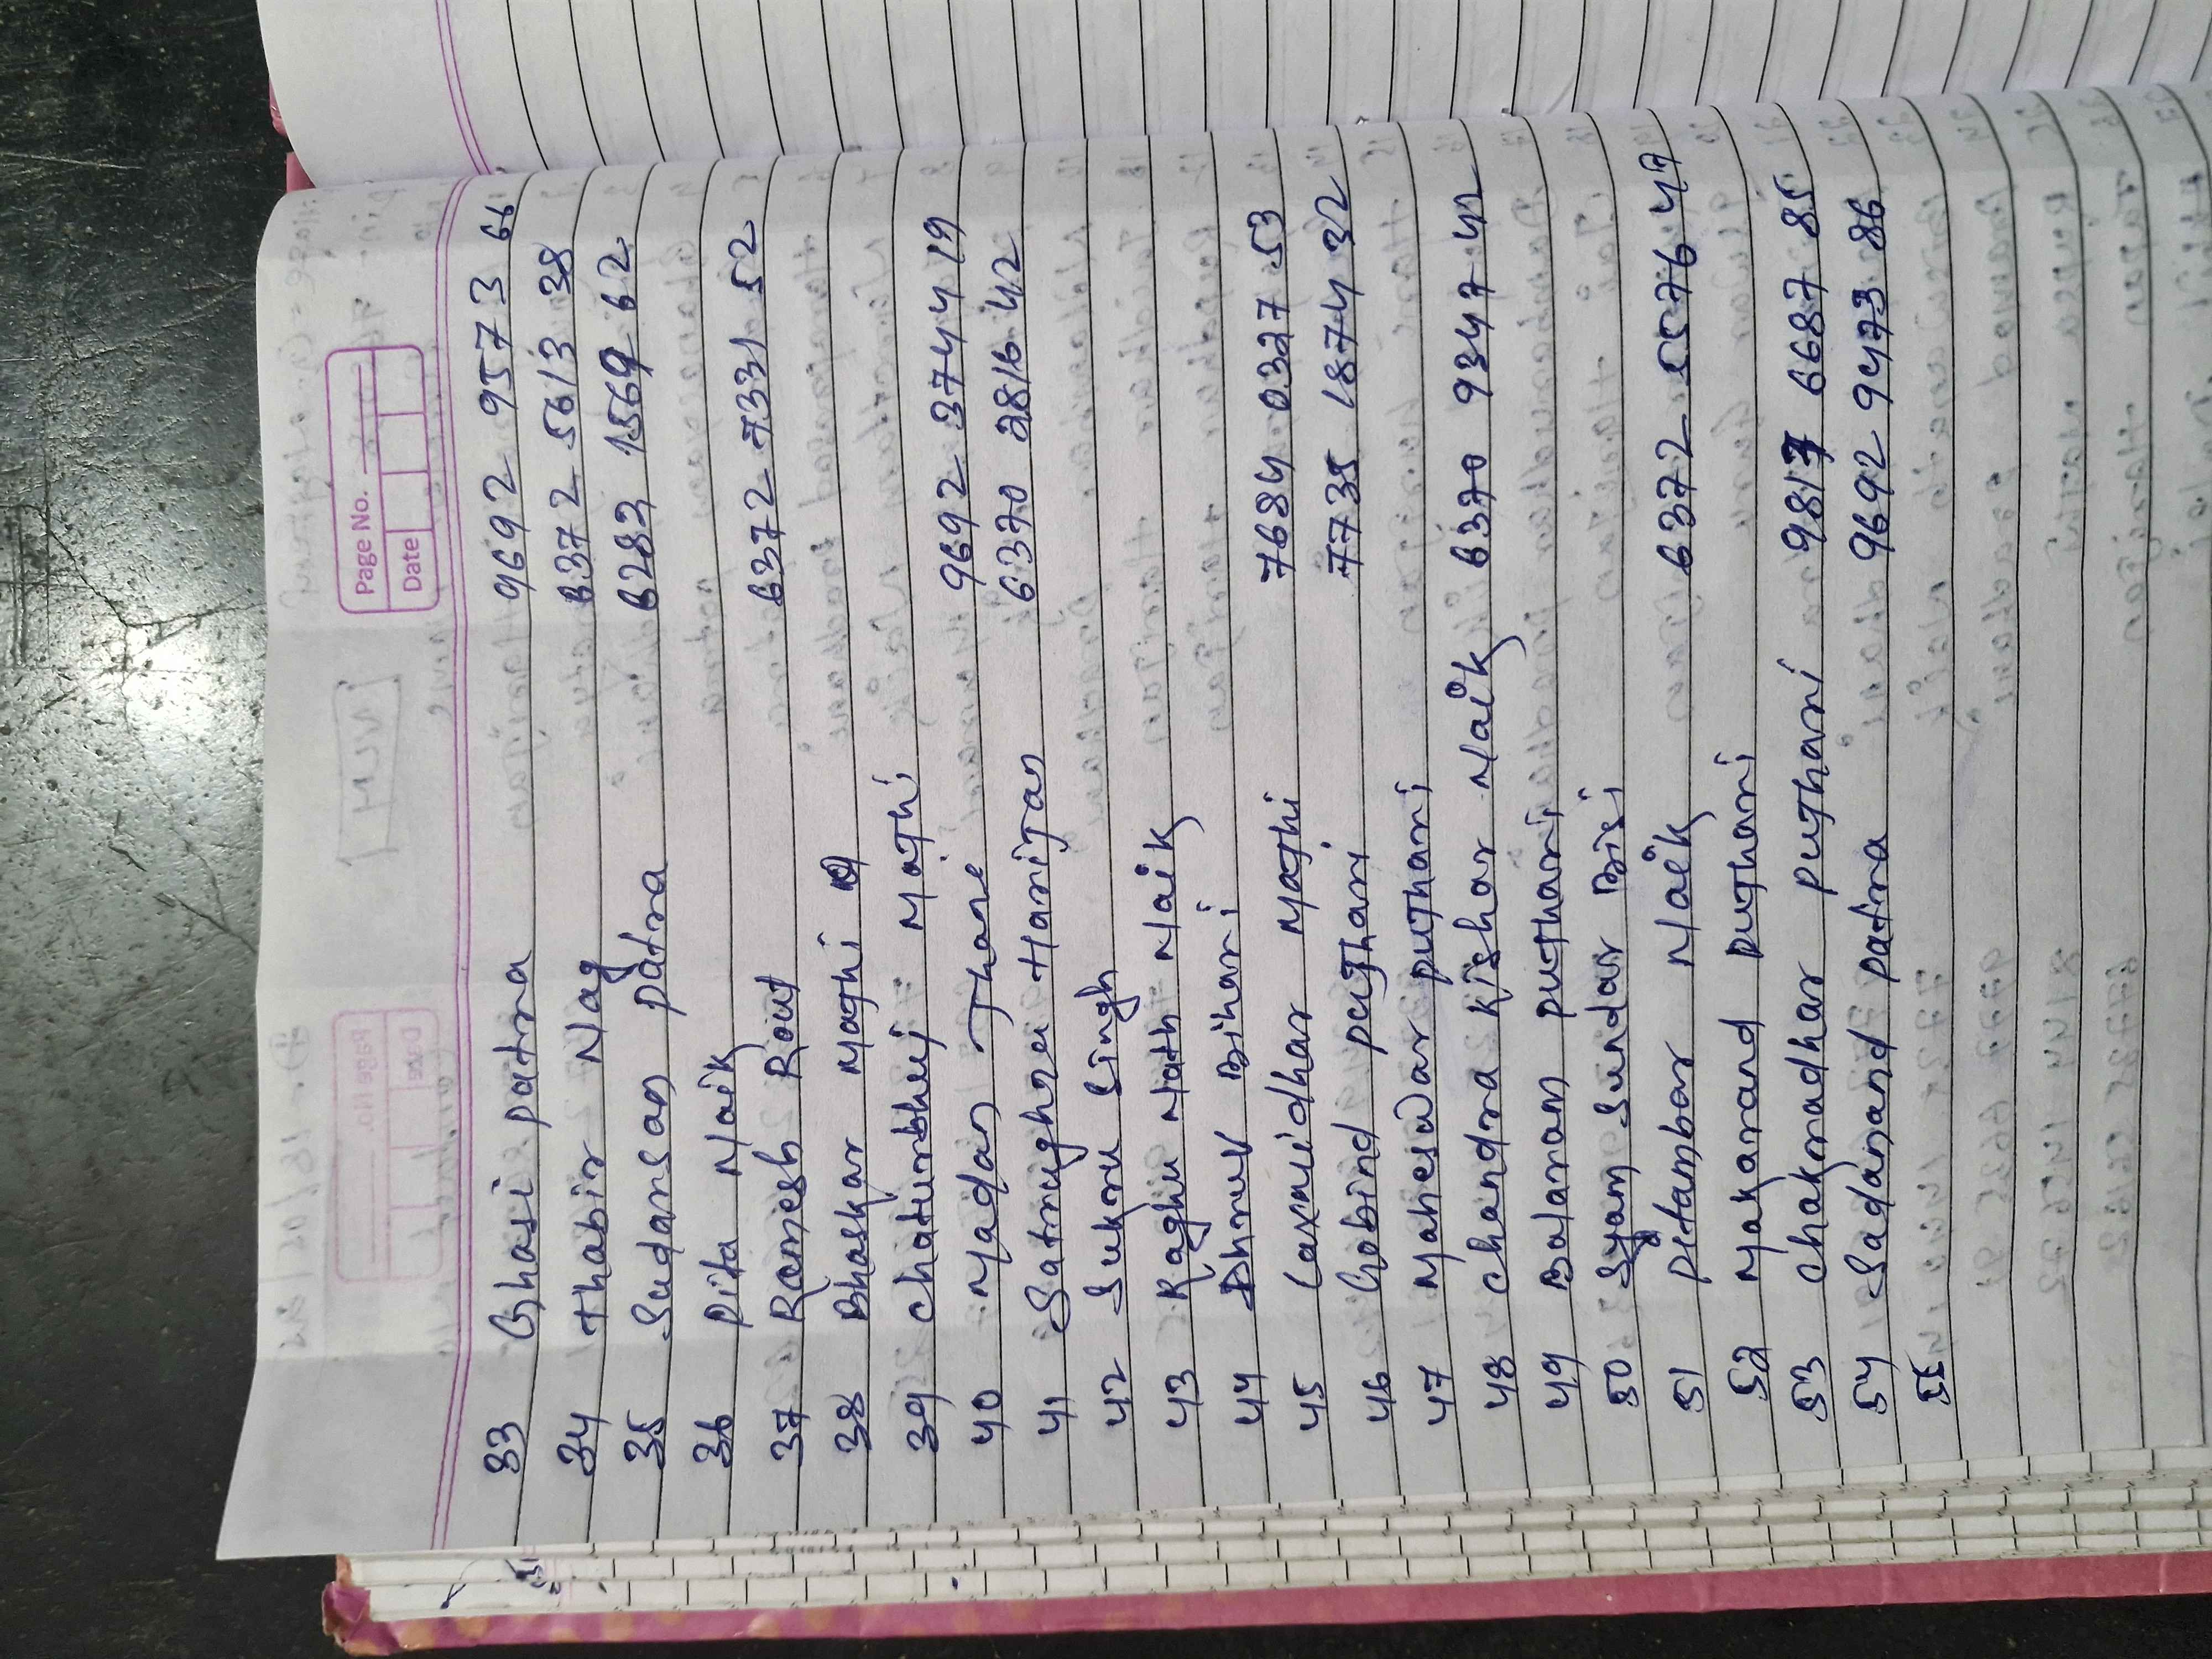 Page No.
Date
33 Ghasi patra 9692 9573 66
34 Thabir Nag 6372 5613 38
35 Sudarsan patra 6283 1569 62
36 Pita Naik
37 Ramesh Rout 6372 7331 52
38 Bhaskar Majhi
39 chaturbhuj Majhi
40 Madan Jhare 9692 3744 19
41 Satrughna Harijan 6370 2816 42
42 Sukru Singh
43 Raghu Nath Naik
44 Dhruv Bihari
45 Laxmidhar Majhi 7684 0327 53
46 Gobind pujhari 7735 1874 32
47 Maheswar pujhari
48 chandra Kishor Naik 6370 9347 42
49 Balaram pujhari
50 Syam Sundar Bisi
51 Pitambar Naik 6372 5576 47
52 Makarand pujhari
53 chakradhar pujhari 9817 6687 85
54 Sadanand patra 9692 9473 86
55